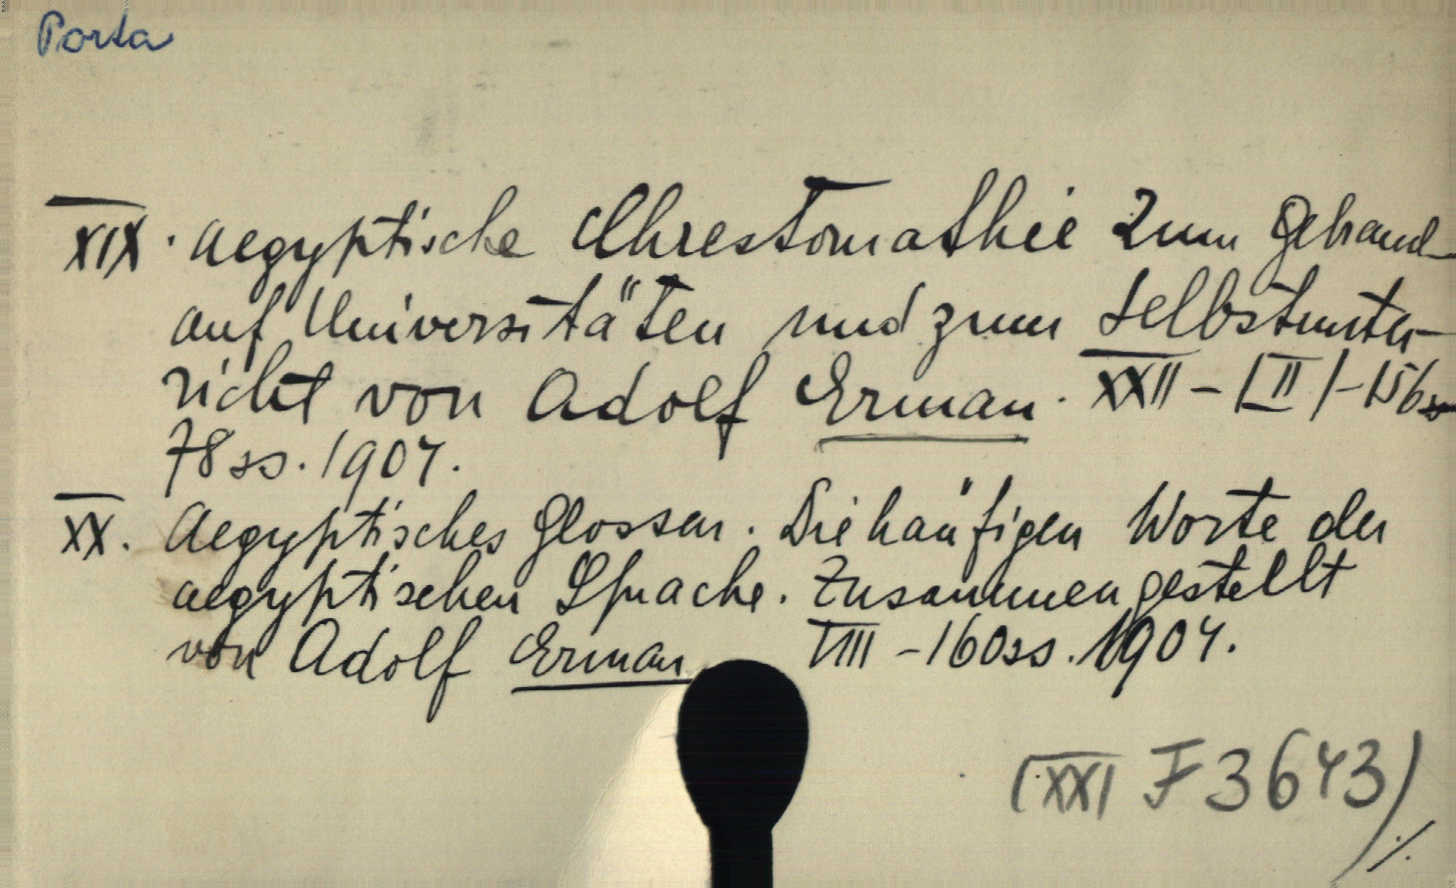 Porta
XIX. Aegyptische Chrestomathie zum Gebrauch
auf Universitäten und zum Selbstunter-
richt von Adolf Erman. XXII - [II] - 156 ss
78 ss. 1904.
XX. Aegyptisches Glossar. Die häufigen Worte der
aegyptischen Sprache. Zusammengestellt
von Adolf Erman VIII - 160 ss. 1904.
(XXI F 3643)
./.